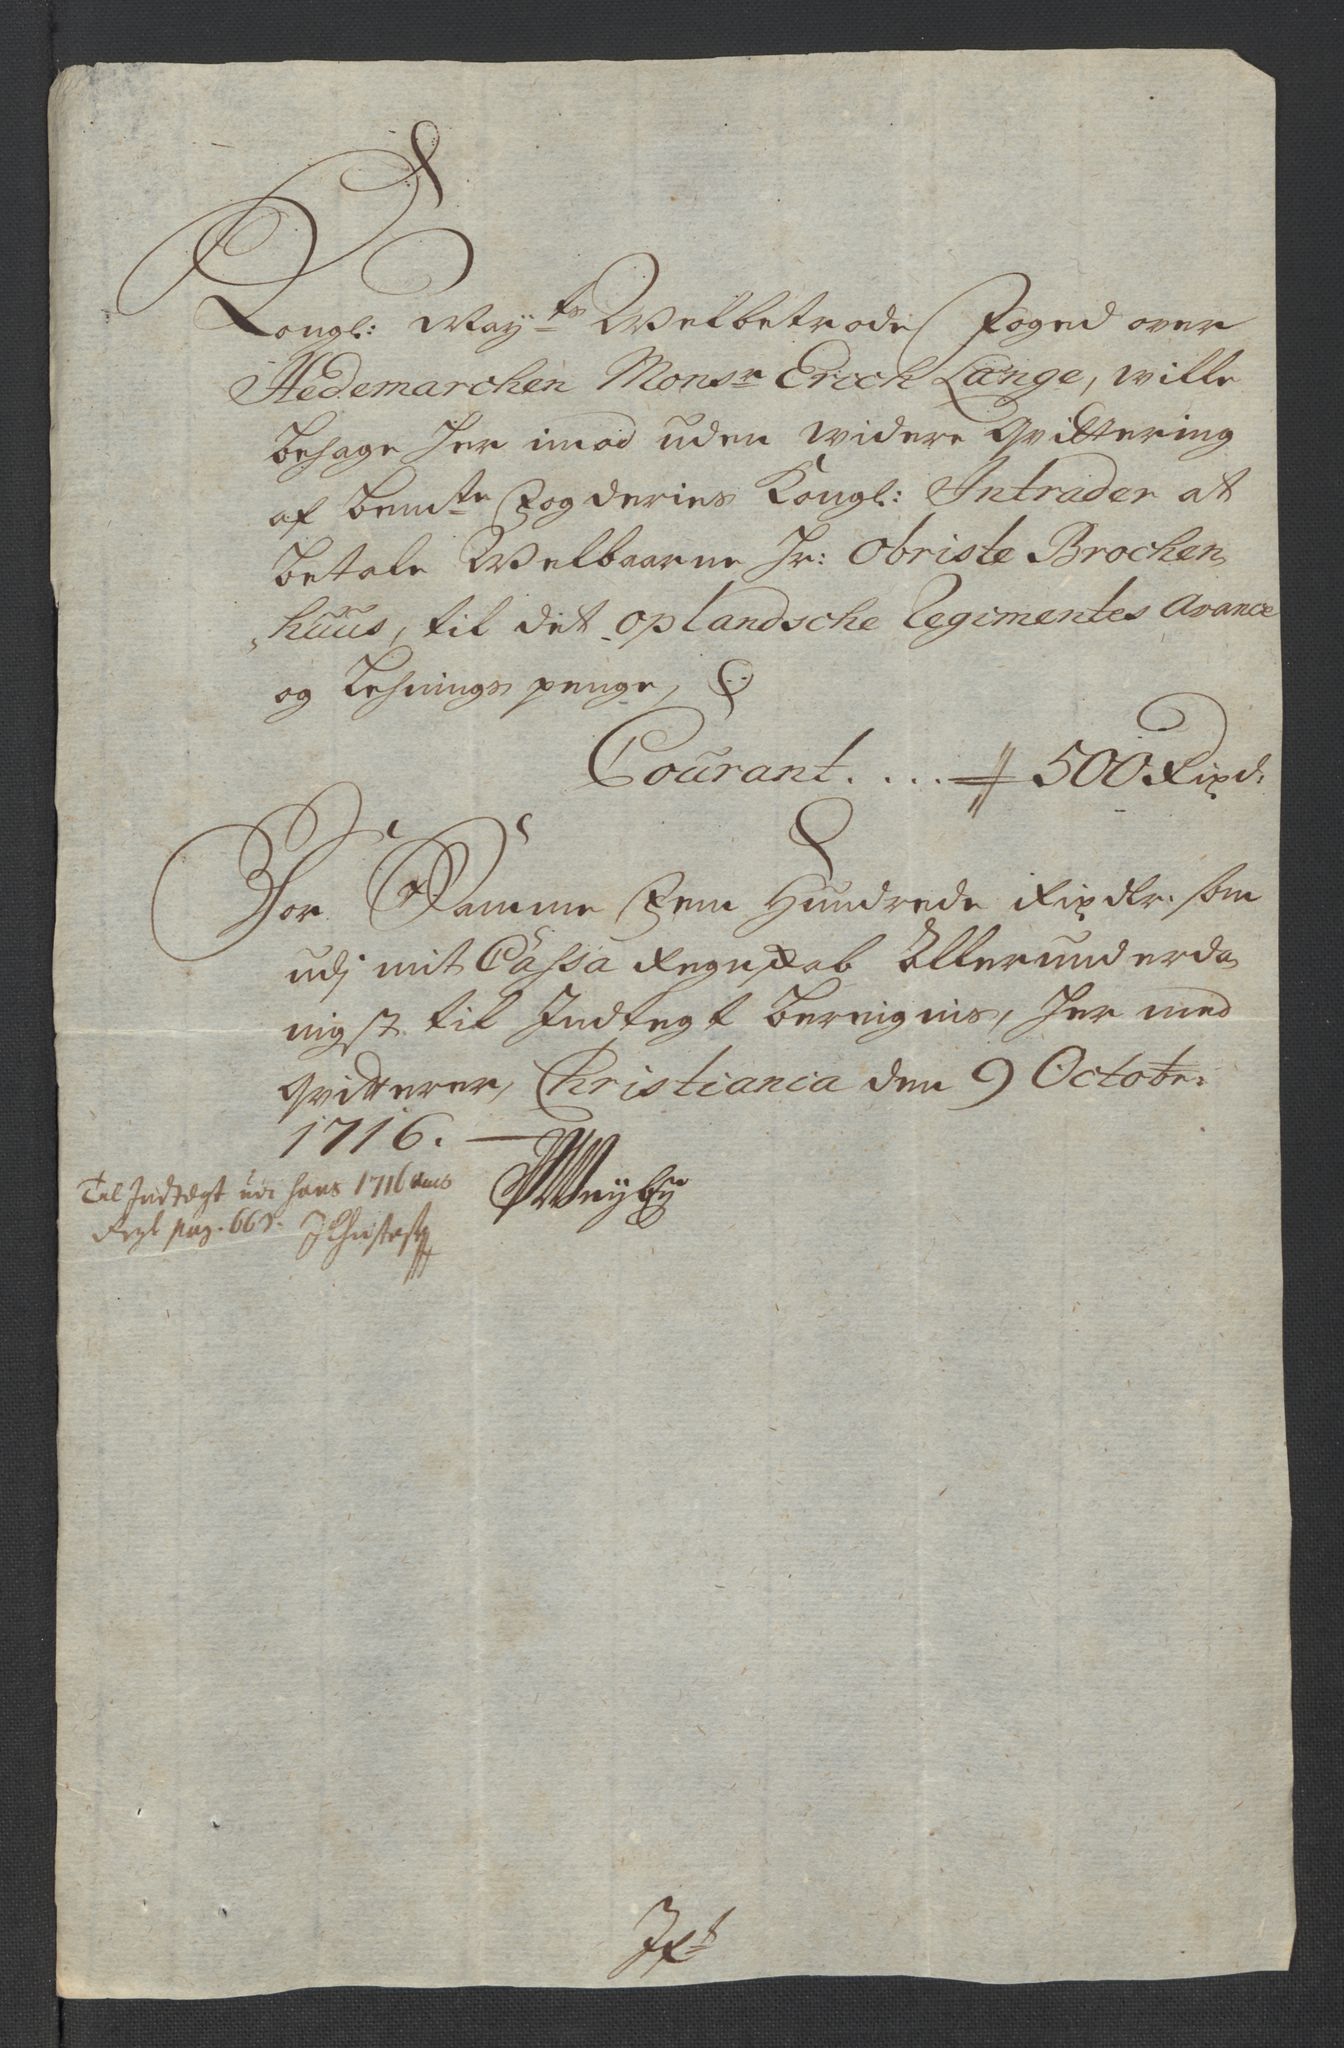 Kongl: Mayts Welbetrode Foged over
Hedemarchen Monsr Erich Lange, wille
behage her imod uden widere Qvittering
af bemte Fogderies Kongl: Intrader at
betale Welbaarne Hr: Obriste Brochen
huus, til det oplandsche Regimentes Avance
og Lehnings penge,
Courant. . . . 500 Rixd:
For Samme Fem Hundrede Rixdlr: som
udj mit Cassa Regnskab Allerunderda
nigst til Indtegt beregnis, her med
Qvitterer, Christiania den 9 Octobr:
1716.
Til Indtægt udi hans 1716 aars
Regsk pag. 665.